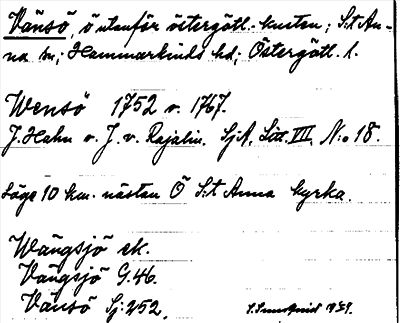 Vänsö, ö utanför östergötl.-kusten; S:t An-
na sn; Hammarkinds hd; Östergötl. l.
Wensö 1752 o. 1767.
J. Hahn o. J. v. Rajalin. SjA, Litt. VIII, N:o 18.
Läge 10 km. nästan Ö S:t Anna kyrka.
Wängsjö ek.
Vängsjö G.46.
Vänsö Sj: 252.